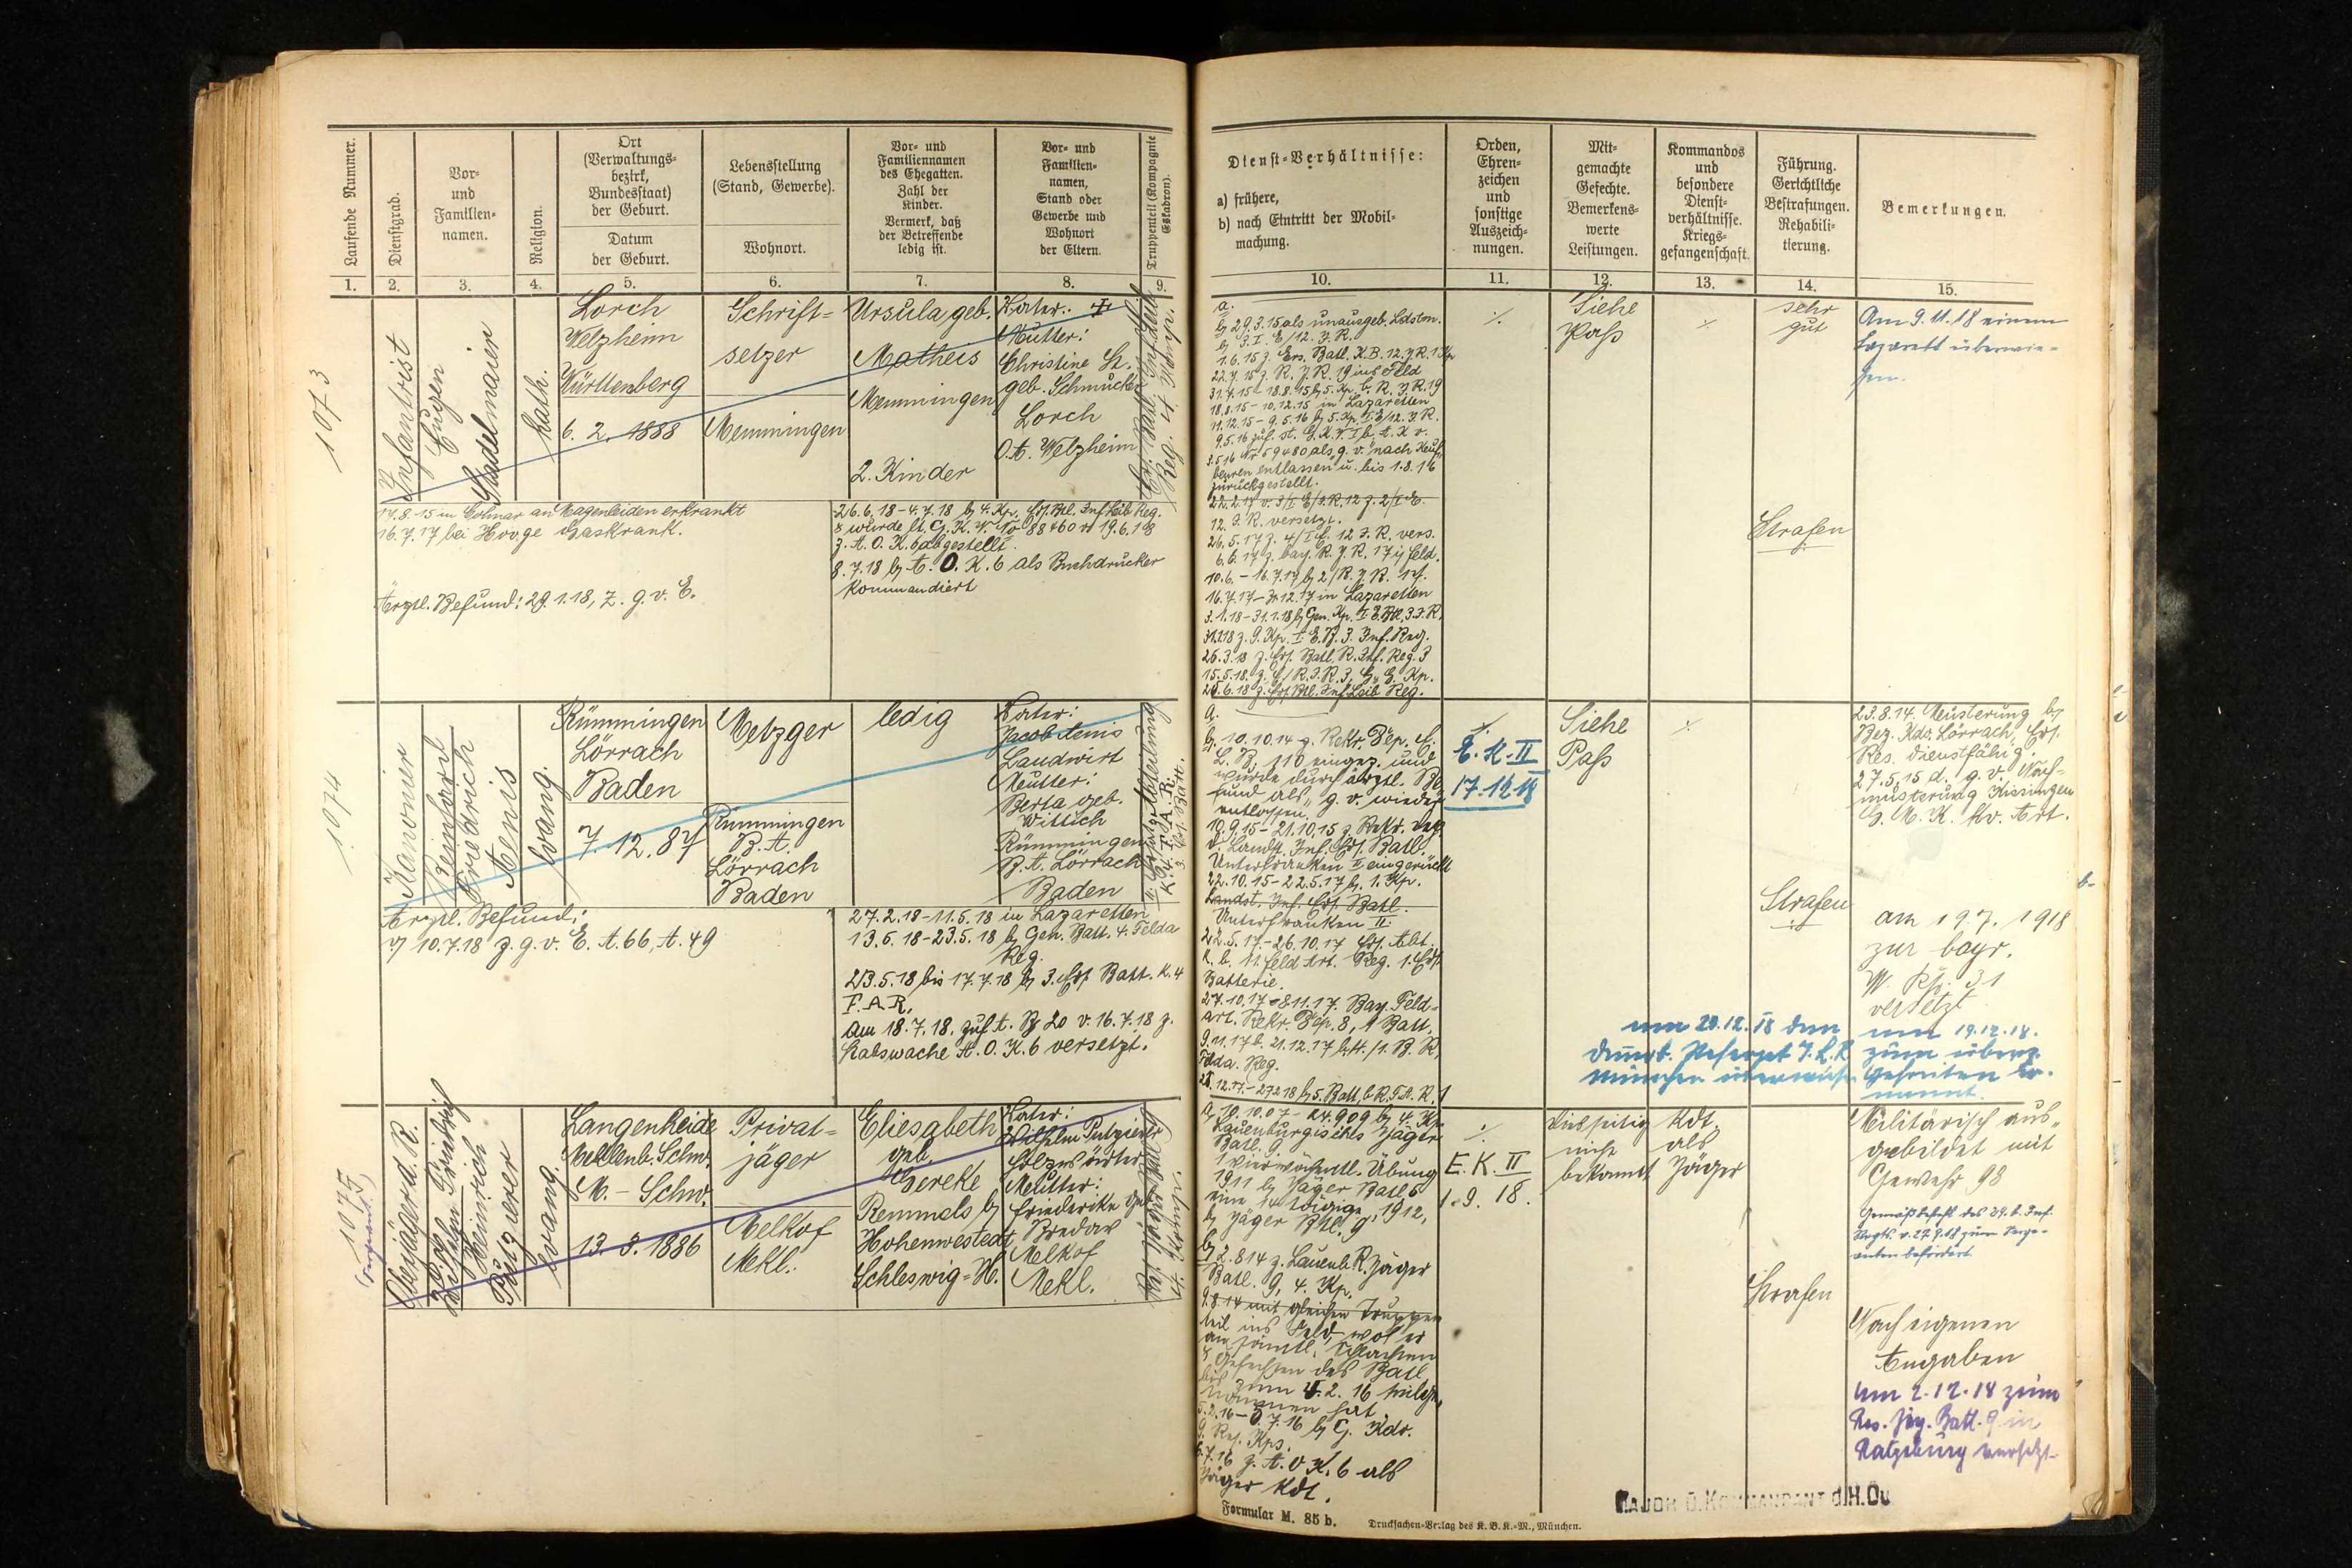 Laufende Nummer.
Dienstgrad.
Vor-
und
Familien-
namen.
Religion.
Ort
(Verwaltungs-
bezirk,
Bundesstaat)
der Geburt.
Datum
der Geburt.
Lebensstellung
(Stand, Gewerbe).
Wohnort.
Vor- und
Familiennamen
des Ehegatten.
Zahl der
Kinder.
Vermerk, daß
der Betreffende
ledig ist.
Vor- und
Familien-
namen,
Stand oder
Gewerbe und
Wohnort
der Eltern.
Truppenteil (Kompagnie
Eskadron).
1.
2.
3.
4.
5.
6.
7.
8.
9.
1073
Infantrist
Eugen
Stadelmaier
kath.
Lorch
Welzheim
Württenberg
6. 2. 1888
Schrift-
setzer
Memmingen
Ursula geb.
Matheis
Memmingen
2. Kinder
Vater: †
Mutter:
Christine St.
geb. Schmucker
Lorch
O.A. Welzheim
Ers. Batl. Inf. Leib
Reg. 4. Komp.
17.8.15 in Colmar an Magenleiden erkrankt
16.7.17 bei Hooge Gaskrank.
Ärztl. Befund: 29.1.18, z. g. v. E.
26.6.18 - 4.7.18 b/ 4. Kp. Ers. Btl. Inf. Leib Reg.
& wurde lt. G. K. V. No 88460 v. 19.6.18
z. A. O. K. 6 abgestellt.
8.7.18 b/ A. O. K. 6 als Buchdrucker
kommandiert
1074
Kanonier
Reinhard
Friedrich
Aenis
evang.
Rümmingen
Lörrach
Baden
7. 12. 87
Metzger
Rümmingen
B. A.
Lörrach
Baden
ledig
Vater:
Jacob Aenis
Landwirt
Mutter:
Berta geb.
Wittich
Rümmingen
B. A. Lörrach
Baden
Ersatz Abteilung
3. Ers. Batt.
Ärztl. Befund:
v/ 10.7.18 z. g. v. E. A. 66, A. 49
27.2.18 - 11.5.18 in Lazaretten
13.5.18 - 23.5.18 b/ Gen. Batt. 4. Felda
Reg.
23.5.18 bis 17.7.18 b/ 3. Ers. Batt. K. 4
F. A. R.
am 18.7.18. zuf. A. B. 20 v. 16.7.18 z.
Stabswache A. O. K. 6 versetzt.
1075
Oberjäger d. R.
Wilhelm Friedrich
Heinrich
Putzierer
evang.
Langenheide
Mecklenb. Schw.
M. - Schw.
13. 3. 1886
Privat-
jäger
Melkof
Mekl.
Eliesabeth
geb.
Gereke
Remmels b/
Hohenwestedt
Schleswig-H.
Vater:
Wilhelm Putzierer
Holzwärter
Mutter:
Friederike geb.
Bredow
Melkof
Mekl.
4. Komp.
Dienst-Verhältnisse:
a) frühere,
b) nach Eintritt der Mobil-
machung.
Orden,
Ehren-
zeichen
und
sonstige
Auszeich-
nungen.
Mit-
gemachte
Gefechte.
Bemerkens-
werte
Leistungen.
Kommandos
und
besondere
Dienst-
verhältnisse.
Kriegs-
gefangenschaft.
Führung.
Gerichtliche
Bestrafungen.
Rehabili-
tierung.
Bemerkungen.
10.
11.
12.
13.
14.
15.
a.
b/ 29.3.15 als unausgeb. Ldstm.
b/ 3. I. E/12. J. R.
1.6.15 z. Ers. Batl. K. B. 12. J. R. 1 Kp
22.7.15 z. R. J. R. 19 ins Feld
31.7.15 - 18.8.15 b/ 5. Kp. b. R. J. R. 19
18.8.15 - 10.12.15 in Lazaretten
11.12.15 - 9.5.16 b/ 5. Kp. I E/12. J. R.
9.5.16 zuf. st. G. K. V. I b. A. K. v.
3.5.16 Nr 59480 als g. v. nach Kauf-
beuren entlassen u. bis 1.8.16
zurückgestellt.
22.2.17 v. 3/I E/J. R. 12 z. 2/I E.
12. J. R. versetzt.
26.5.17 z. 4/I E. 12 J. R. vers.
6.6.17 z. bay. R. J. R. 17 i/ Feld.
10.6. - 16.7.17 b/ 2/R. J. R. 17.
16.7.17 - 3.12.17 in Lazaretten
3.1.18 - 31.1.18 b/ Gen. Kp. I E. Btl. 3. J. R.
31.1.18 z. 9. Kp. I E. B. 3. Inf. Reg.
26.3.18 z. Ers. Batl. R. Inf. Reg. 3
15.5.18 z. E/R. J. R. 3, G. G. Kp.
25.6.18 z. Ers. Btl. Inf. Leib Reg.
Siehe
Pass
sehr
gut
Am 9.11.18 einem
Lazarett überwie-
sen.
Strafen
a.
b. 10.10.14 z. Rekr. Dep. E.
L. B. 110 eingez. und
wurde durch ärztl. Be-
fund als g. v. wieder
entlassen.
10.9.15 - 21.10.15 z. Rekr. Dep.
d. Landst. Inf. Ers. Batl.
Unterfranken II eingerückt
22.10.15 - 22.5.17 b/ 1. Kp.
Landst. Inf. Ers. Batl.
Unterfranken II.
22.5.17 - 26.10.17 Ers. Abt.
K. b. 11. Feld Art. Reg. 1. Ers.
Batterie.
27.10.17 - 8.11.17. Bay. Feld-
art. Rekr. Dep. 8, 1 Batt.
9.11.17 b. 21.12.17 b. 4./1. B. R.
Felda. Reg.
21.12.17. - 27.2.18 b/ 5. Batt. b. R. F. A. R. 1
E. K. II
17.12.18
Siehe
Pass
23.8.14. Musterung b/
Bez. Kdo. Lörrach, Ers.
Res. dienstfähig.
27.5.15 d. g. v. Nach-
musterung Kissingen
G. M. K. kv. Art.
Strafen
am 19.7.1918
zur bayr.
W. Kp. 31
versetzt
am 20.12.18 dem
München überwiesen
am 19.12.18.
zum überz.
Gefreiten er-
nannt.
a/ 10.10.07 - 24.9.09 b/ 4. Kp
Lauenburgisches Jäger
Batl. 9
1 vierwöchentl. Übung
1911 b/ Jäger Batl 6
eine 14 tägige, 1912,
b/ Jäger Btl. 9.
b/ 2.8.14 z. Lauenb. R. Jäger
Batl. 9, 4. Kp.
9.8.14 mit gleichen Truppen
teil ins Feld, wo er
an sämtl. Schlachten
& Gefechten des Batl
bis zum 4.2.16 teilge-
nommen hat.
5.2.16 - 5.7.16 b/ G. Kdo.
9. Res. Kps.
6.7.16 z. A. O K. 6 als
Jäger Kdt.
E. K. II
1.9.18.
nicht
bekannt
Kdt.
als
Jäger
Strafen
Militärisch aus-
gebildet mit
Gewehr 98
Nach eigenen
Angaben
Am 2.12.18 zum
Res. Jäg. Batl. 9 in
Ratzeburg versetzt
MAJOR U. KOMMANDANT d. H. Qu
Formular M. 85 b.
Drucksachen-Verlag des K. B. K.-M., München.